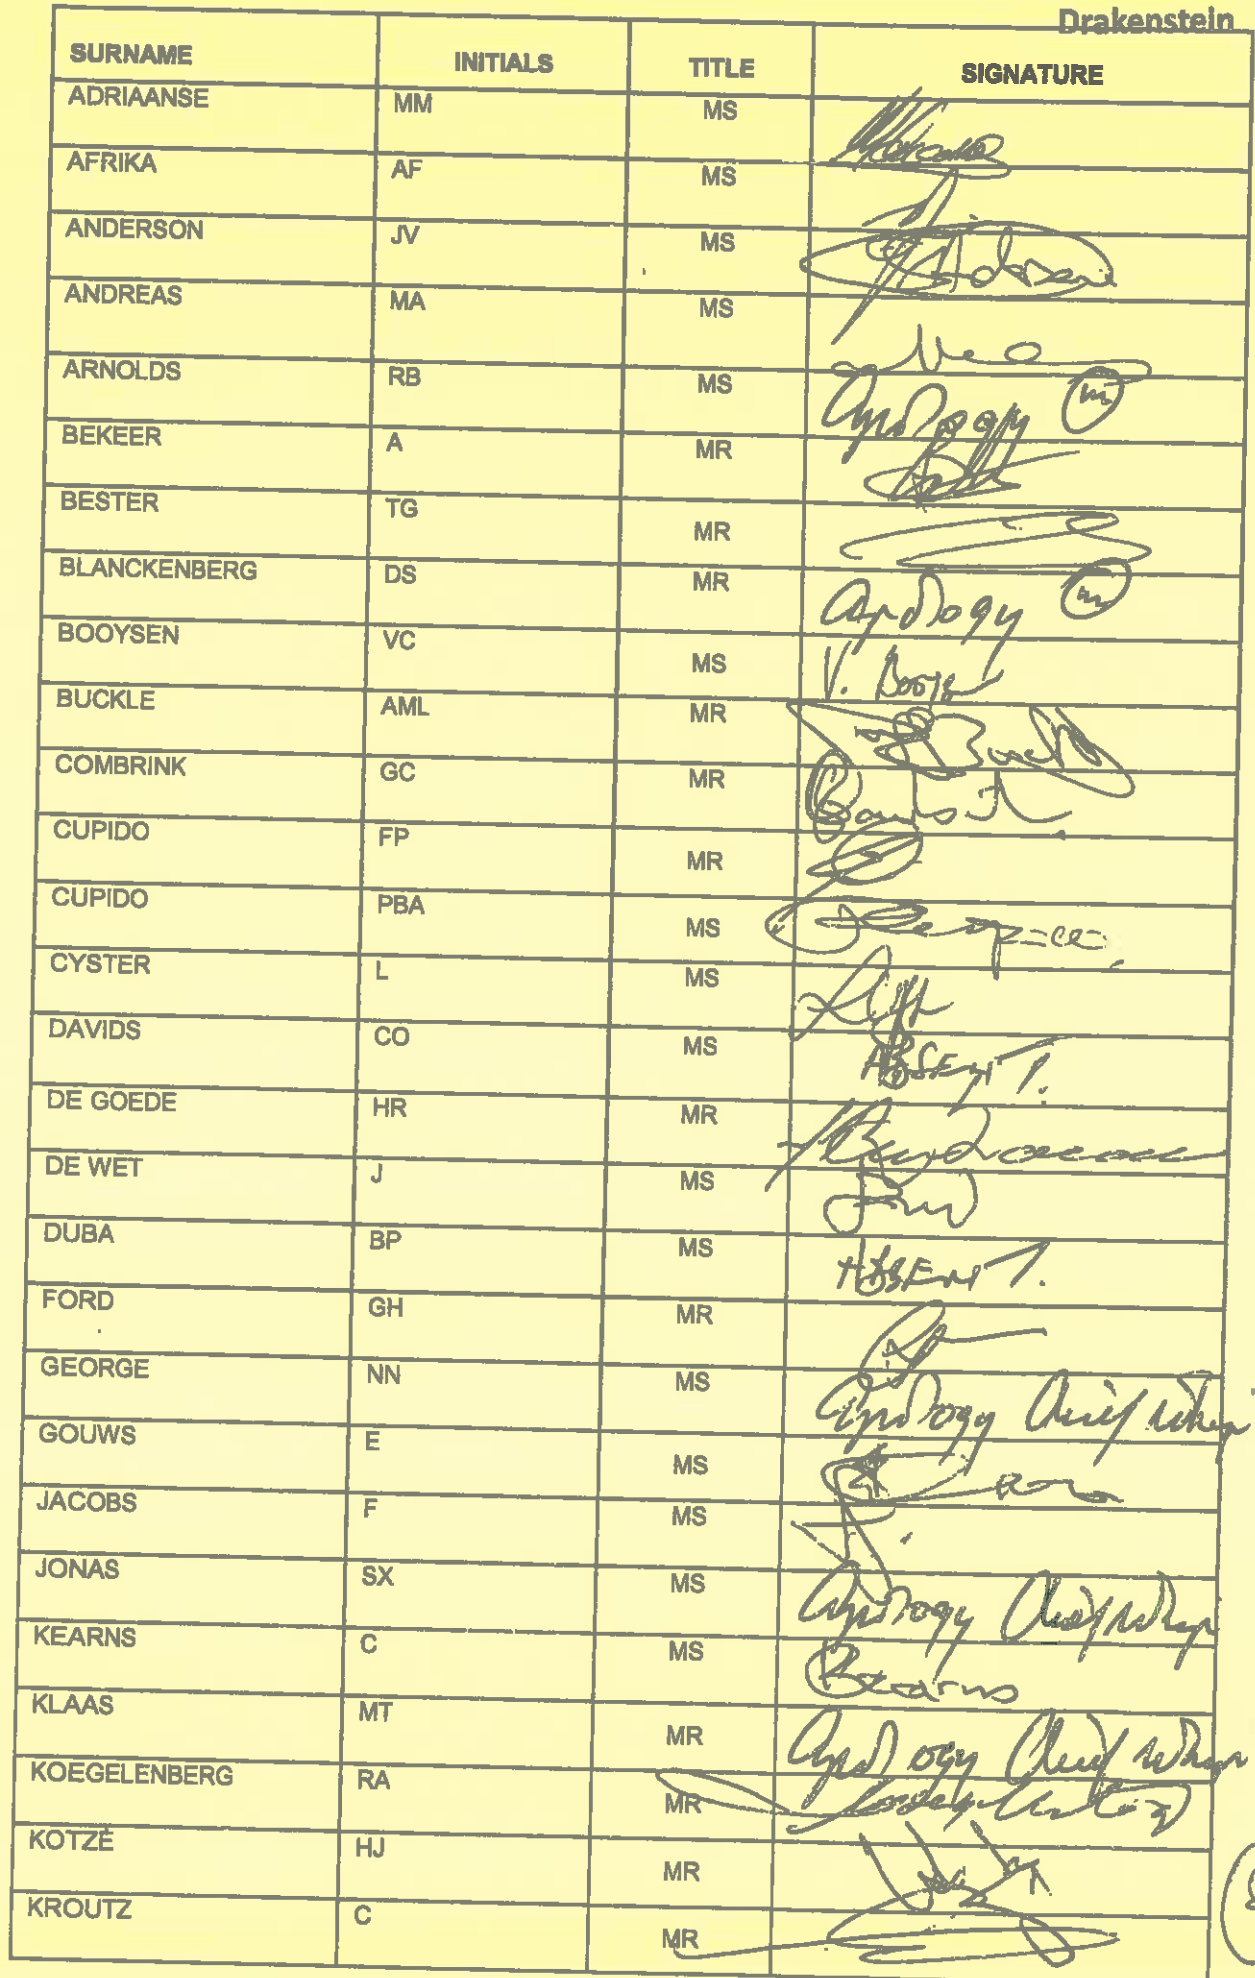 Drakenstein
SURNAME INITIALS TITLE SIGNATURE
ADRIAANSE MM MS
AFRIKA AF MS
ANDERSON JV MS
ANDREAS MA MS
ARNOLDS RB MS Apology
BEKEER A MR
BESTER TG MR
BLANCKENBERG DS MR Apology
BOOYSEN VC MS V. Booysen
BUCKLE AML MR
COMBRINK GC MR
CUPIDO FP MR
CUPIDO PBA MS
CYSTER L MS
DAVIDS CO MS ABSENT.
DE GOEDE HR MR
DE WET J MS
DUBA BP MS ABSENT.
FORD GH MR
GEORGE NN MS Apology Chief Whip
GOUWS E MS
JACOBS F MS
JONAS SX MS Apology Chief Whip
KEARNS C MS
KLAAS MT MR Apology Chief Whip
KOEGELENBERG RA MR
KOTZÈ HJ MR
KROUTZ C MR